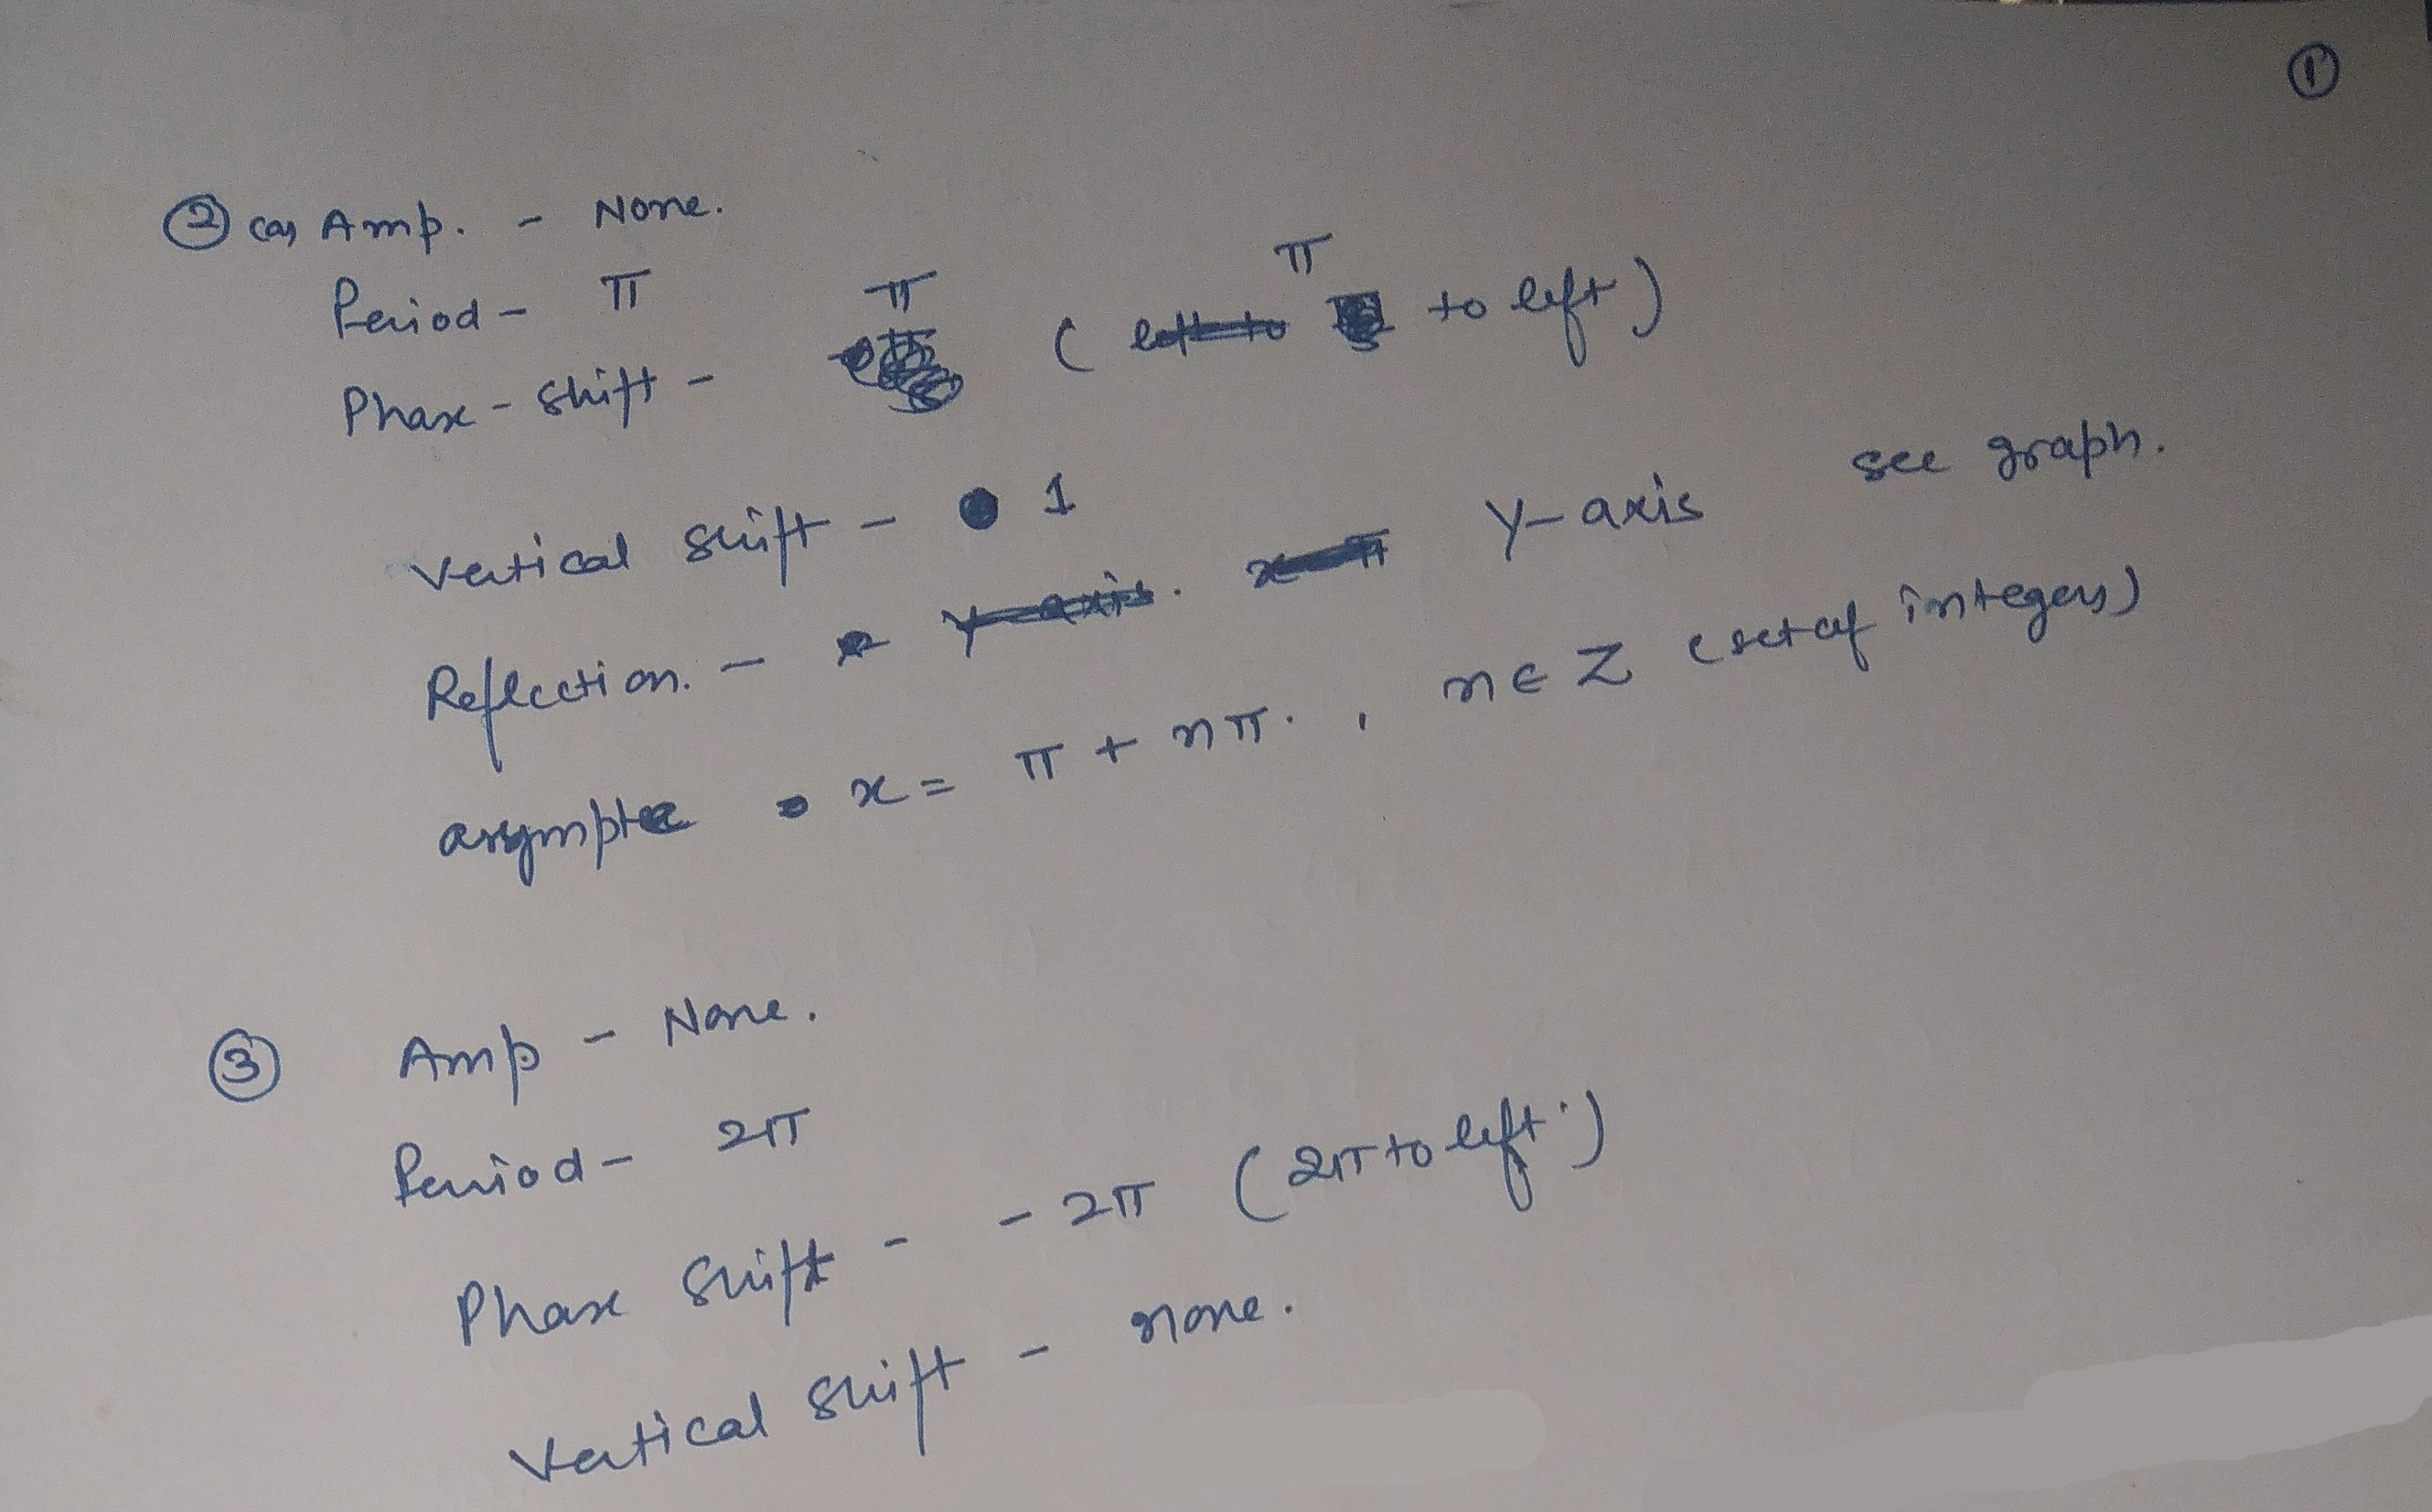 ①
② (a) Amp. - None.
Period - π
Phase-shift - π ( π to left)
Vertical shift - 1
Reflection. - Y-axis see graph.
x = π + nπ. , n ∈ Z (set of integers)
③ Amp - None.
Period - 2π
Phase shift - - 2π (2π to left.)
Vertical shift - none.